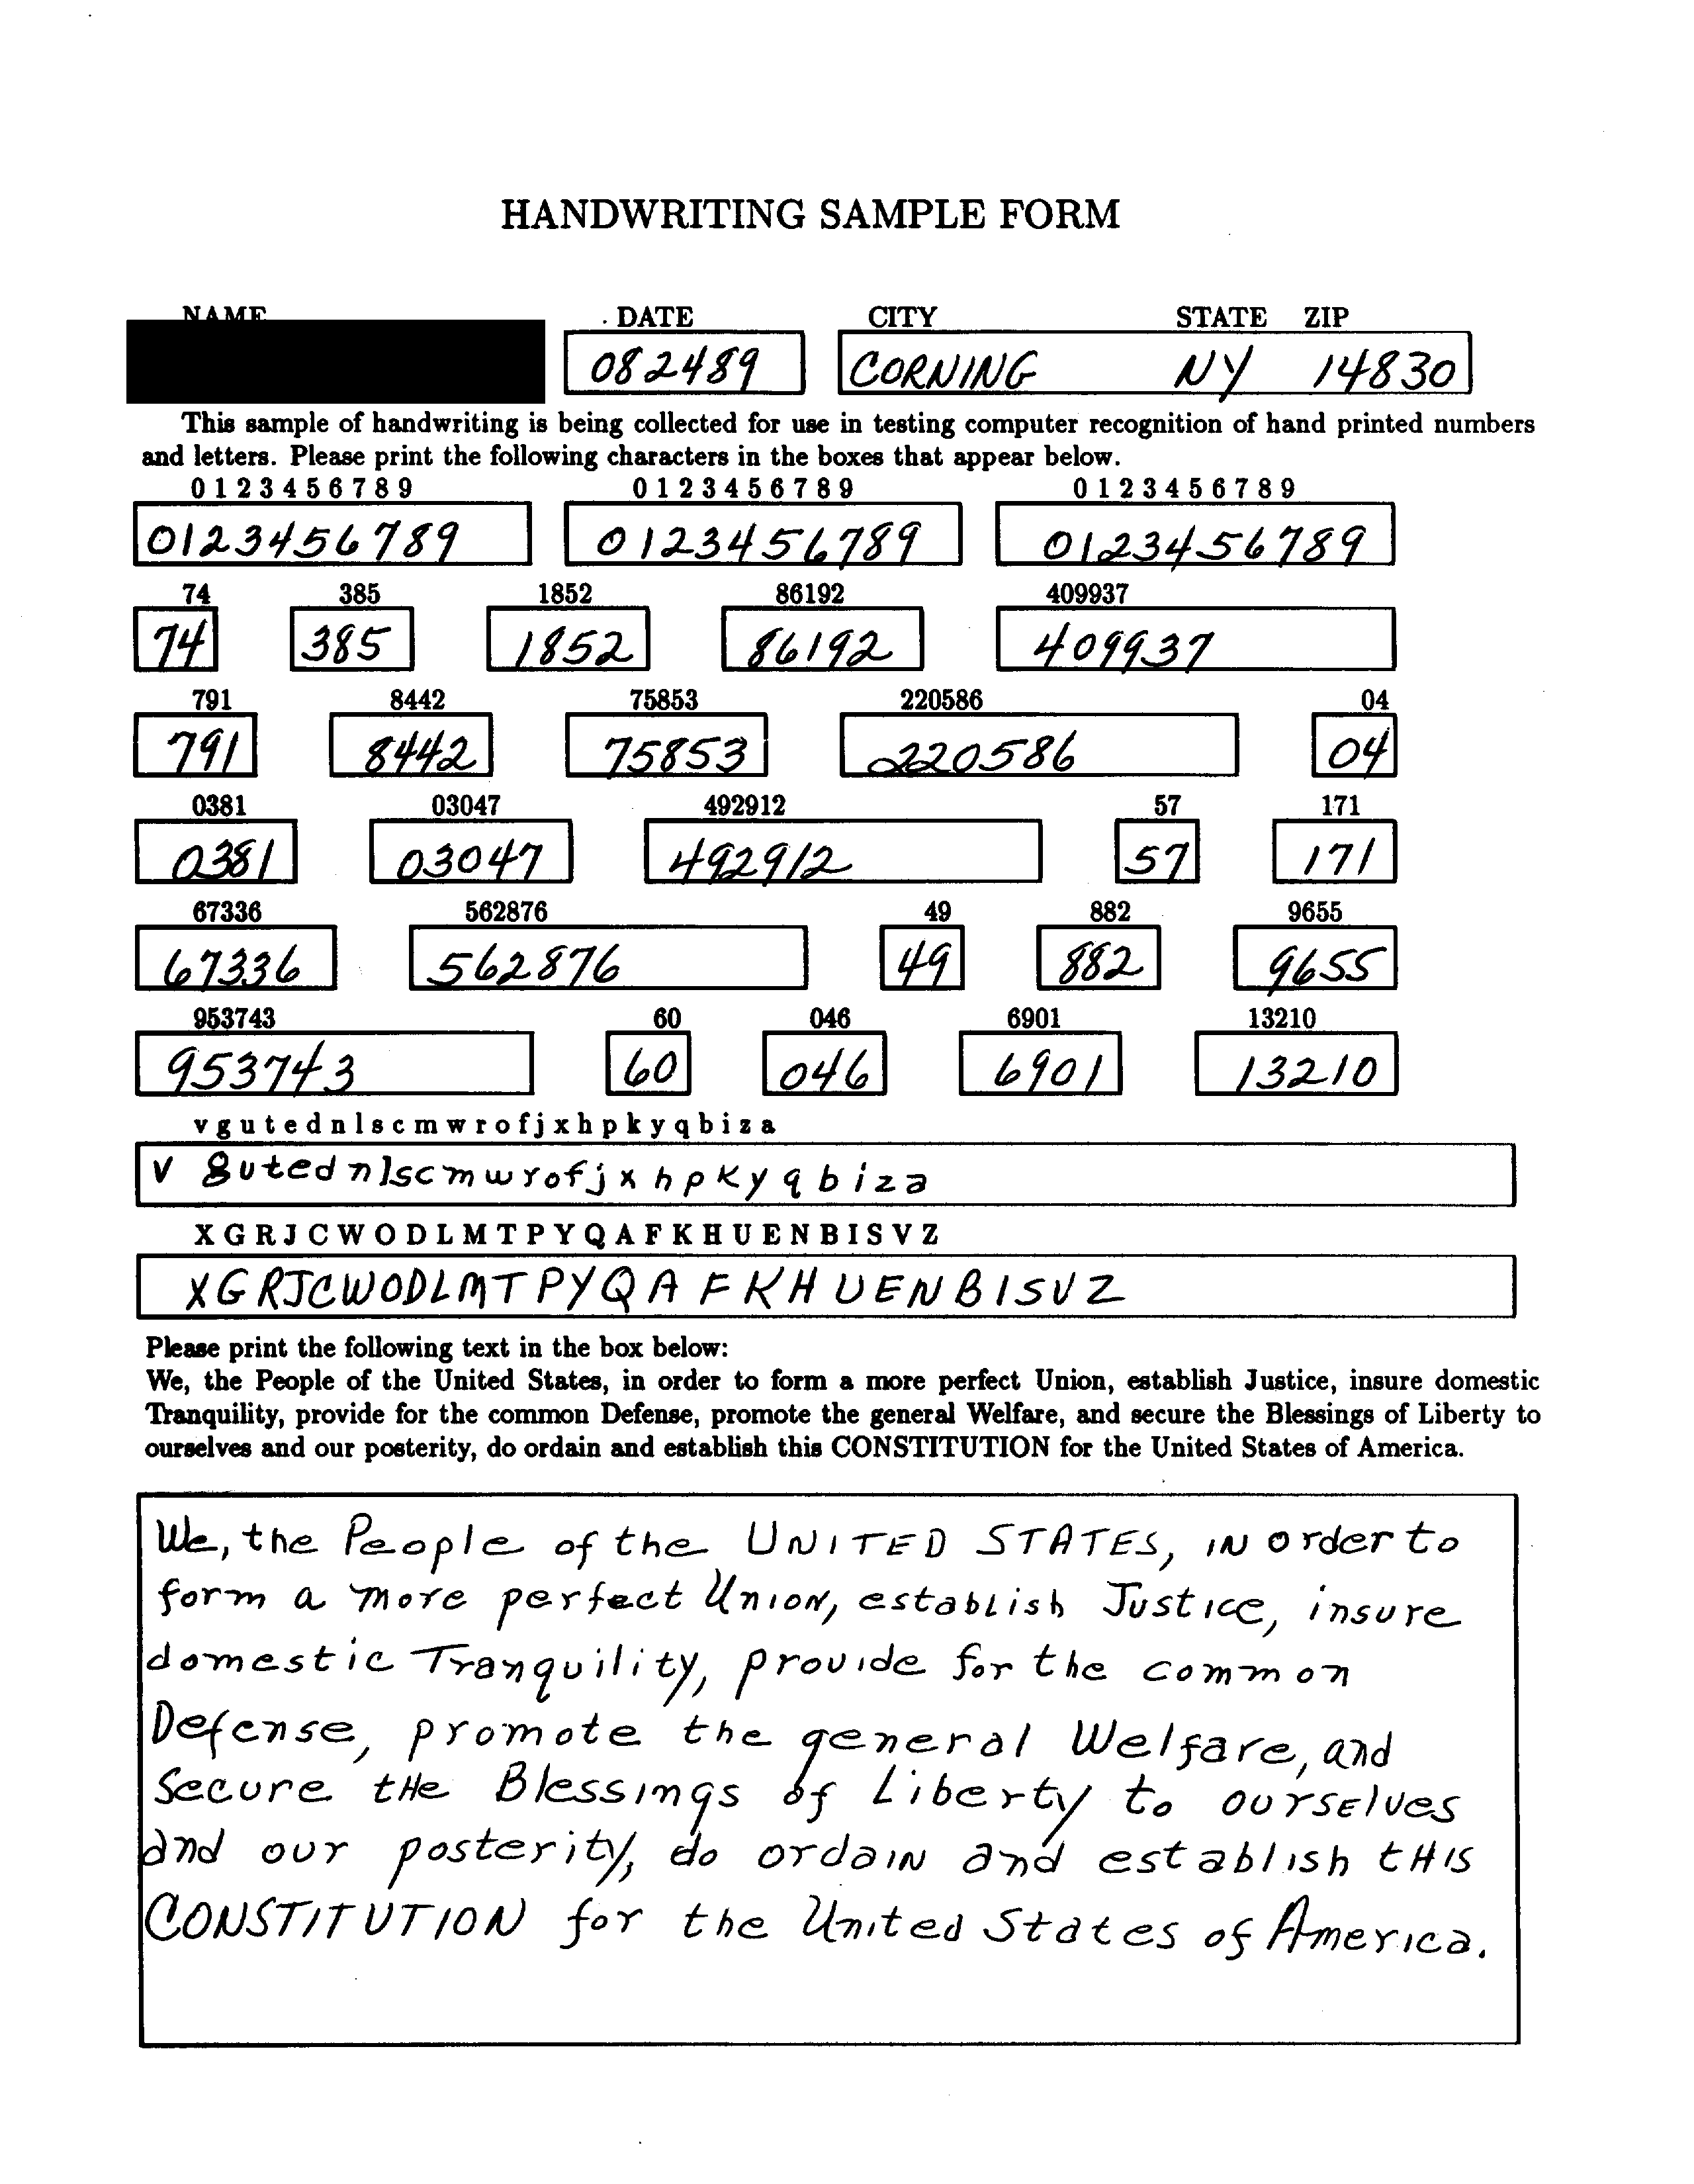 HANDWRITING SAMPLE FORM
NAME DATE CITY STATE ZIP
082489 CORNING NY 14830
This sample of handwriting is being collected for use in testing computer recognition of hand printed numbers
and letters. Please print the following characters in the boxes that appear below.
0 1 2 3 4 5 6 7 8 9 0 1 2 3 4 5 6 7 8 9 0 1 2 3 4 5 6 7 8 9
0123456789 0123456789 0123456789
74 385 1852 86192 409937
74 385 1852 86192 409937
791 8442 75853 220586 04
791 8442 75853 220586 04
0381 03047 492912 57 171
0381 03047 492912 57 171
67336 562876 49 882 9655
67336 562876 49 882 9655
953743 60 046 6901 13210
953743 60 046 6901 13210
v g u t e d n l s c m w r o f j x h p k y q b i z a
v gutednlscmwrofjxhpkyqbiza
X G R J C W O D L M T P Y Q A F K H U E N B I S V Z
XGRJCWODLMTPYQAFKHUENBISVZ
Please print the following text in the box below:
We, the People of the United States, in order to form a more perfect Union, establish Justice, insure domestic
Tranquility, provide for the common Defense, promote the general Welfare, and secure the Blessings of Liberty to
ourselves and our posterity, do ordain and establish this CONSTITUTION for the United States of America.
We, the People of the UNITED STATES, IN order to
form a more perfect Union, establish Justice, insure
domestic Tranquility, provide for the common
Defense, promote the general Welfare, and
Secure tHe Blessings of Liberty to ourselves
and our posterity, do ordaIN and establish tHIS
CONSTITUTION for the United States of America.